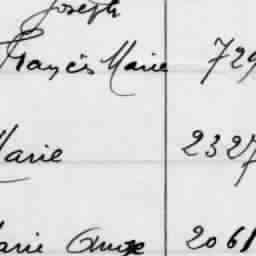 Joseph
Françis Marie 729
Marie 2327
Marie Ange 2061